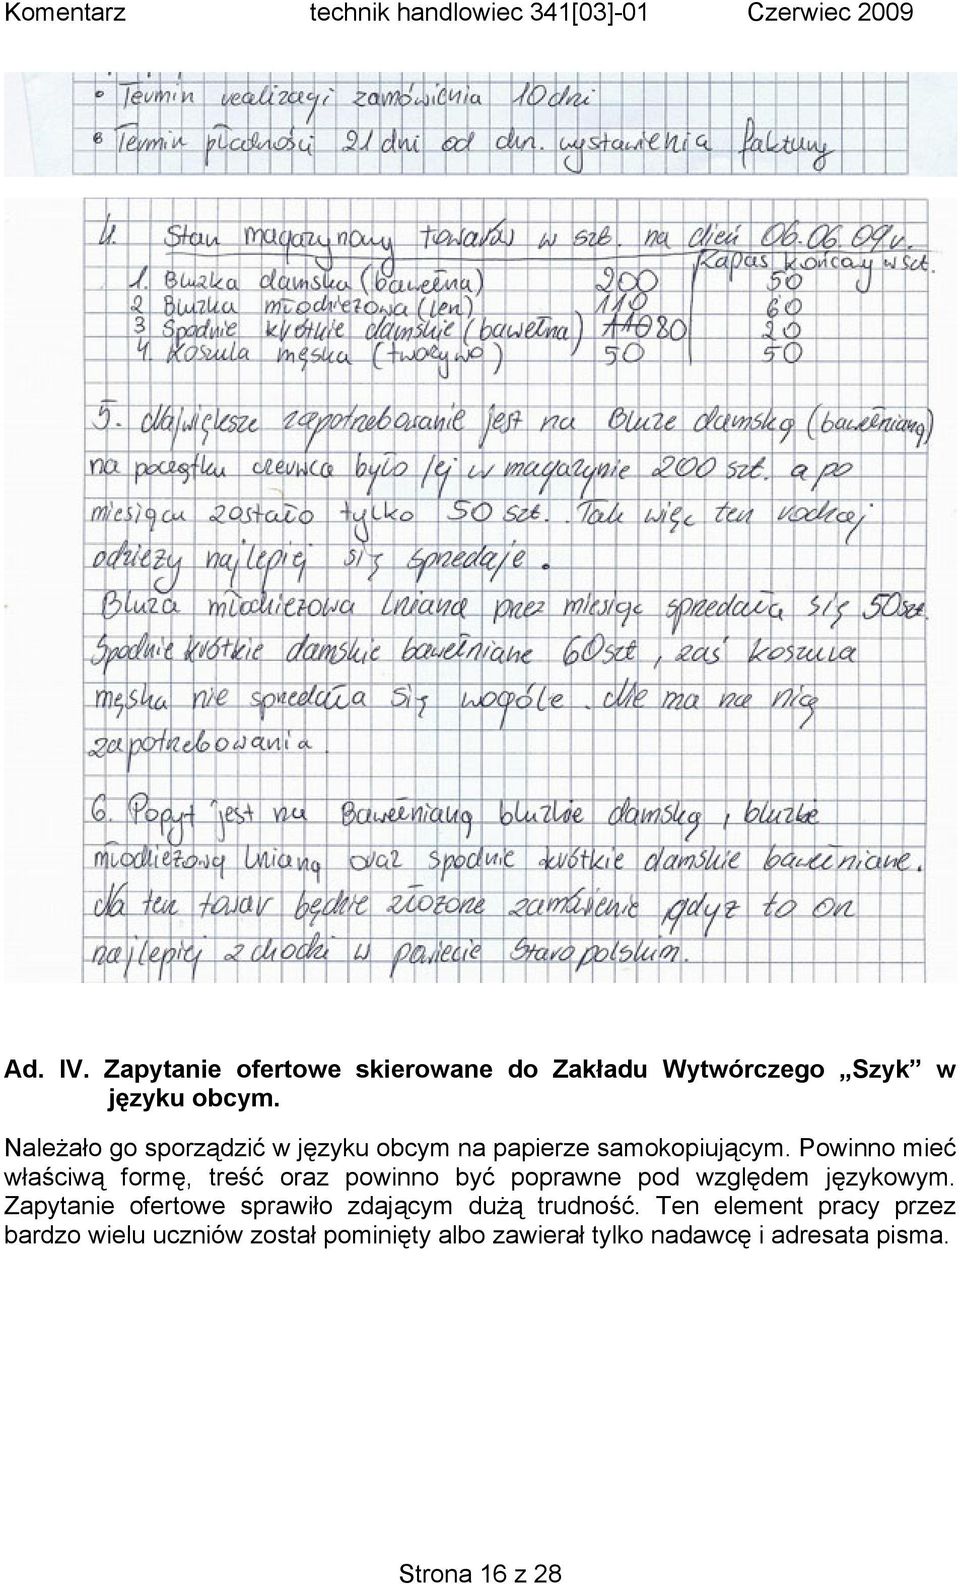 Komentarz technik handlowiec 341[03]-01 Czerwiec 2009
• Termin realizacji zamówienia 10 dni
• Termin płatności 21 dni od dn. wystawienia faktury
4. Stan magazynowy towarów w szt. na dień 06.06.09r.
Zapas końcowy w szt.
1. Bluzka damska (bawełna) 200 50
2 Bluzka młodzieżowa (len) 110 60
3 Spodnie krótkie damskie (bawełna) 80 20
4. Koszula męska (tworzywo) 50 50
5. Największe zapotrzebowanie jest na Bluze damską (bawełnianą)
na początku czerwca było jej w magazynie 200 szt. a po
miesiącu zostało tylko 50 szt.. Tak więc ten rodzaj
odzieży najlepiej się sprzedaje.
Bluza młodzieżowa lniana przez miesiąc sprzedała się 50szt.
Spodnie krótkie damskie bawełniane 60szt, zaś koszula
męska nie sprzedała się wogóle. Nie ma na nią
zapotrzebowania.
6. Popyt jest na Bawełnianą bluzkie damską, bluzkie
młodzieżową lnianą oraz spodnie krótkie damskie bawełniane.
Na ten towar będzie złożone zamówienie gdyż to on
najlepiej zchodzi w powiecie Staropolskim.
Ad. IV. Zapytanie ofertowe skierowane do Zakładu Wytwórczego „Szyk” w
języku obcym.
Należało go sporządzić w języku obcym na papierze samokopiującym. Powinno mieć
właściwą formę, treść oraz powinno być poprawne pod względem językowym.
Zapytanie ofertowe sprawiło zdającym dużą trudność. Ten element pracy przez
bardzo wielu uczniów został pominięty albo zawierał tylko nadawcę i adresata pisma.
Strona 16 z 28